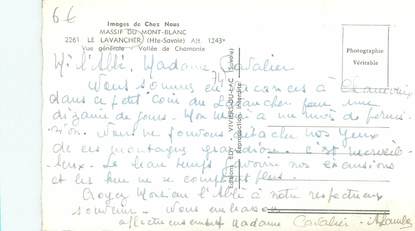 6€
Images de Chez Nous
MASSIF DU MONT-BLANC
2261 LE LAVANCHER (Hte-Savoie) Alt. 1243m
Vue générale - Vallée de Chamonix
Photographie
Véritable
Mr l'Abbé, Madame Cavalier
Nous sommes en vacances à Chamonix
dans ce petit coin du Lavancher pour une
dizaine de jours. Mon a un mois de permis-
sion. Nous ne pouvons détacher nos yeux
de ces montagnes grandioses. c'est merveil-
leux. Le beau temps favorise nos excursions
et les km ne se comptent plus.
Croyez Monsieur l'Abbé à notre respectueux
souvenir. Nous embrassons
affectueusement Madame Cavalier.